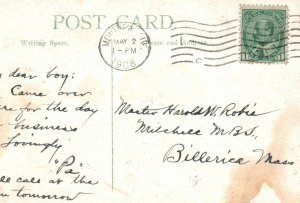 POST CARD
Writing Space.
MAY 2
1-PM
1908
My dear boy:
Came over
here for the day
business
Lovingly
"Pa"
call at the
tomorrow
Master Harold W. Robie
Mitchell M.B.S.
Billerica Mass